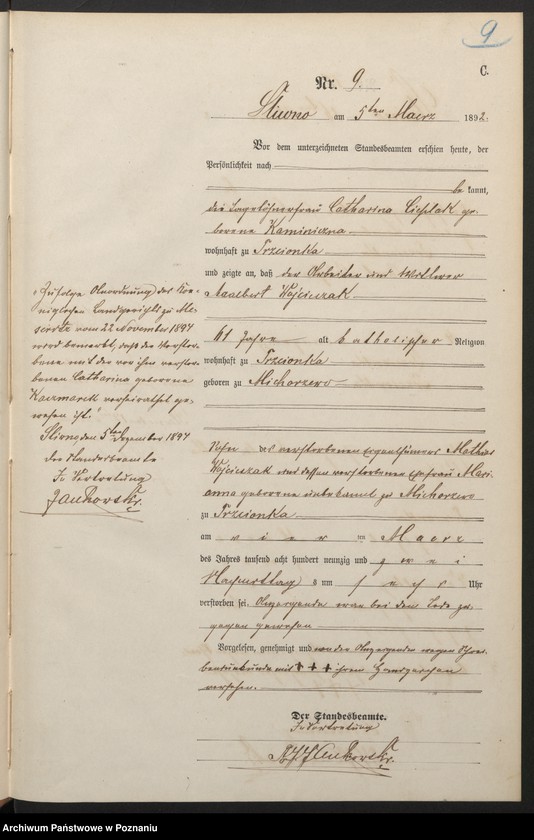 9
C.
Nr. 9.
Sliwno am 5ten Maerz 1892.
Vor dem unterzeichneten Standesbeamten erschien heute, der
Persönlichkeit nach
be kannt,
die Tagelöhnerfrau Catharina Cieslak ge-
borene Kaminiczna
wohnhaft zu Trzcionka
und zeigte an, daß der Arbeiter und Wittwer
Adalbert Wojciuszak
61 Jahre alt katholischer Religion
wohnhaft zu Trzcionka
geboren zu Michorzewo
Sohn des verstorbenen Eigenthümers Mathias
Wojciuszak und dessen verstorbenen Ehefrau Mari-
anna geborene unbekannt zu Michorzewo
zu Trzcionka
am vier ten Maerz
des Jahres tausend acht hundert neunzig und zwei
Nachmittag s um sechs Uhr
verstorben sei. Anzeigende war bei dem Tode zu-
gegen gewesen
Vorgelesen, genehmigt und von der Anzeigenden wegen Schrei-
bensunkunde mit +++ ihrem Handzeichen
versehen.
Der Standesbeamte.
In Vertretung
Jankowski
Zufolge Anordnung des Kö-
niglichen Landgerichts zu Me-
seritz vom 22 November 1894
wird bemerkt, daß der Verstor-
bene mit der vor ihm verstor-
benen Catharina geborene
Kaczmarek verheirathet ge-
wesen ist.
Sliwno, den 5ten Dezember 1894
Der Standesbeamte
In Vertretung
Jankowski
Archiwum Państwowe w Poznaniu